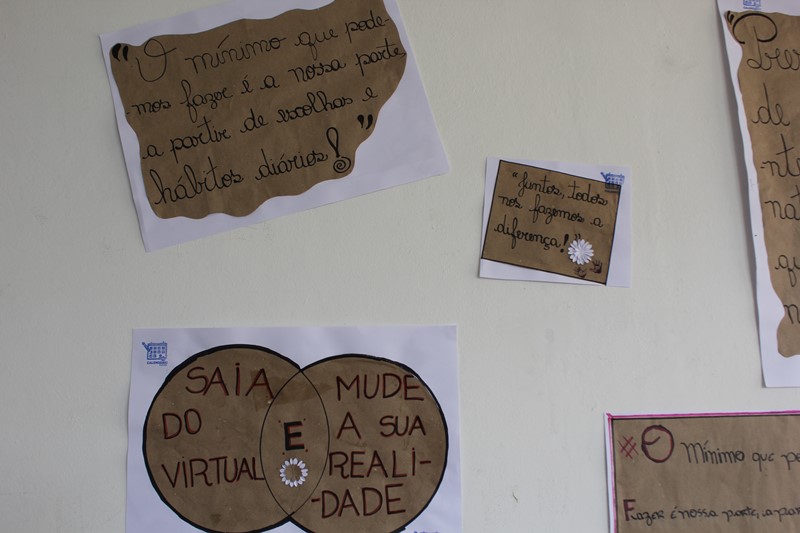 "O mínimo que pode-
-mos fazer é a nossa parte,
a partir de escolhas e
hábitos diários!"
"Juntos, todos
nos fazemos a
diferença!"
SAIA
DO
VIRTUAL
E
MUDE
A SUA
REALI-
-DADE
de
#O Mínimo que
Fazer é nossa parte, a